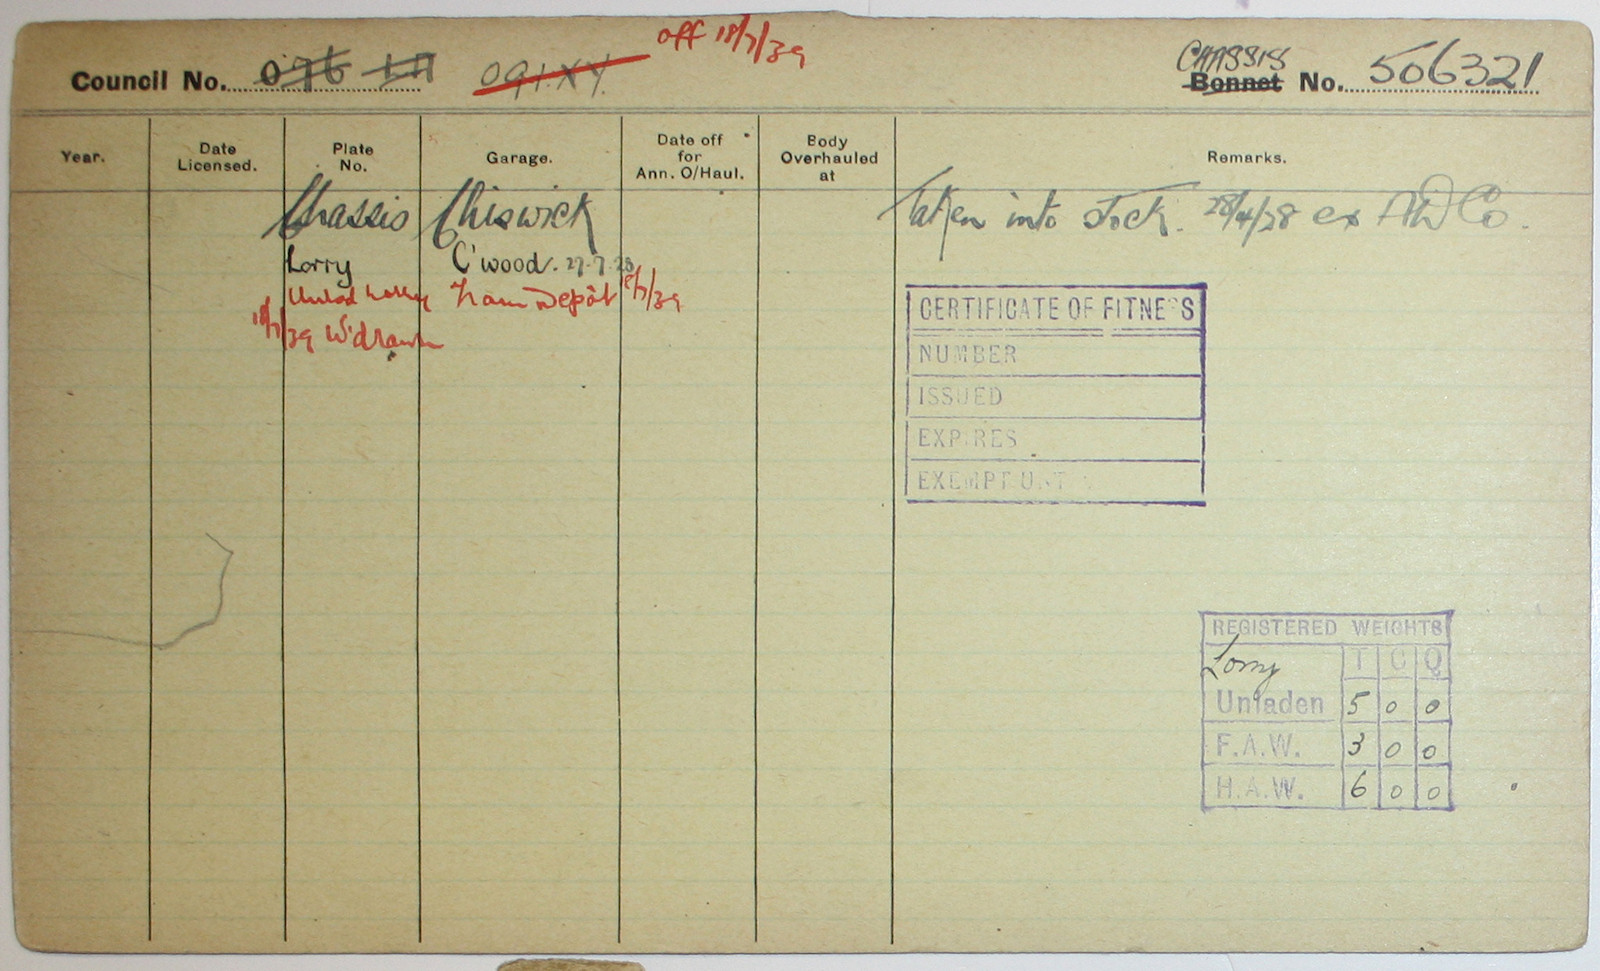 off 18/7/39
Council No. 091.XY. CHASSIS Bonnet No. 506321
Year. Date Licensed. Plate No. Garage. Date off for Ann. O/Haul. Body Overhauled at Remarks.
Chassis Chiswick Taken into stock. 28/4/28 ex ADCo.
Lorry C'wood. 27.7.28
Tram Depôt 18/7/39
18/7/39 W'drawn
CERTIFICATE OF FITNESS
NUMBER
ISSUED
EXPIRES
EXEMPT UNT
REGISTERED WEIGHTS
Lorry T C Q
Unladen 5 0 0
F.A.W. 3 0 0
H.A.W. 6 0 0